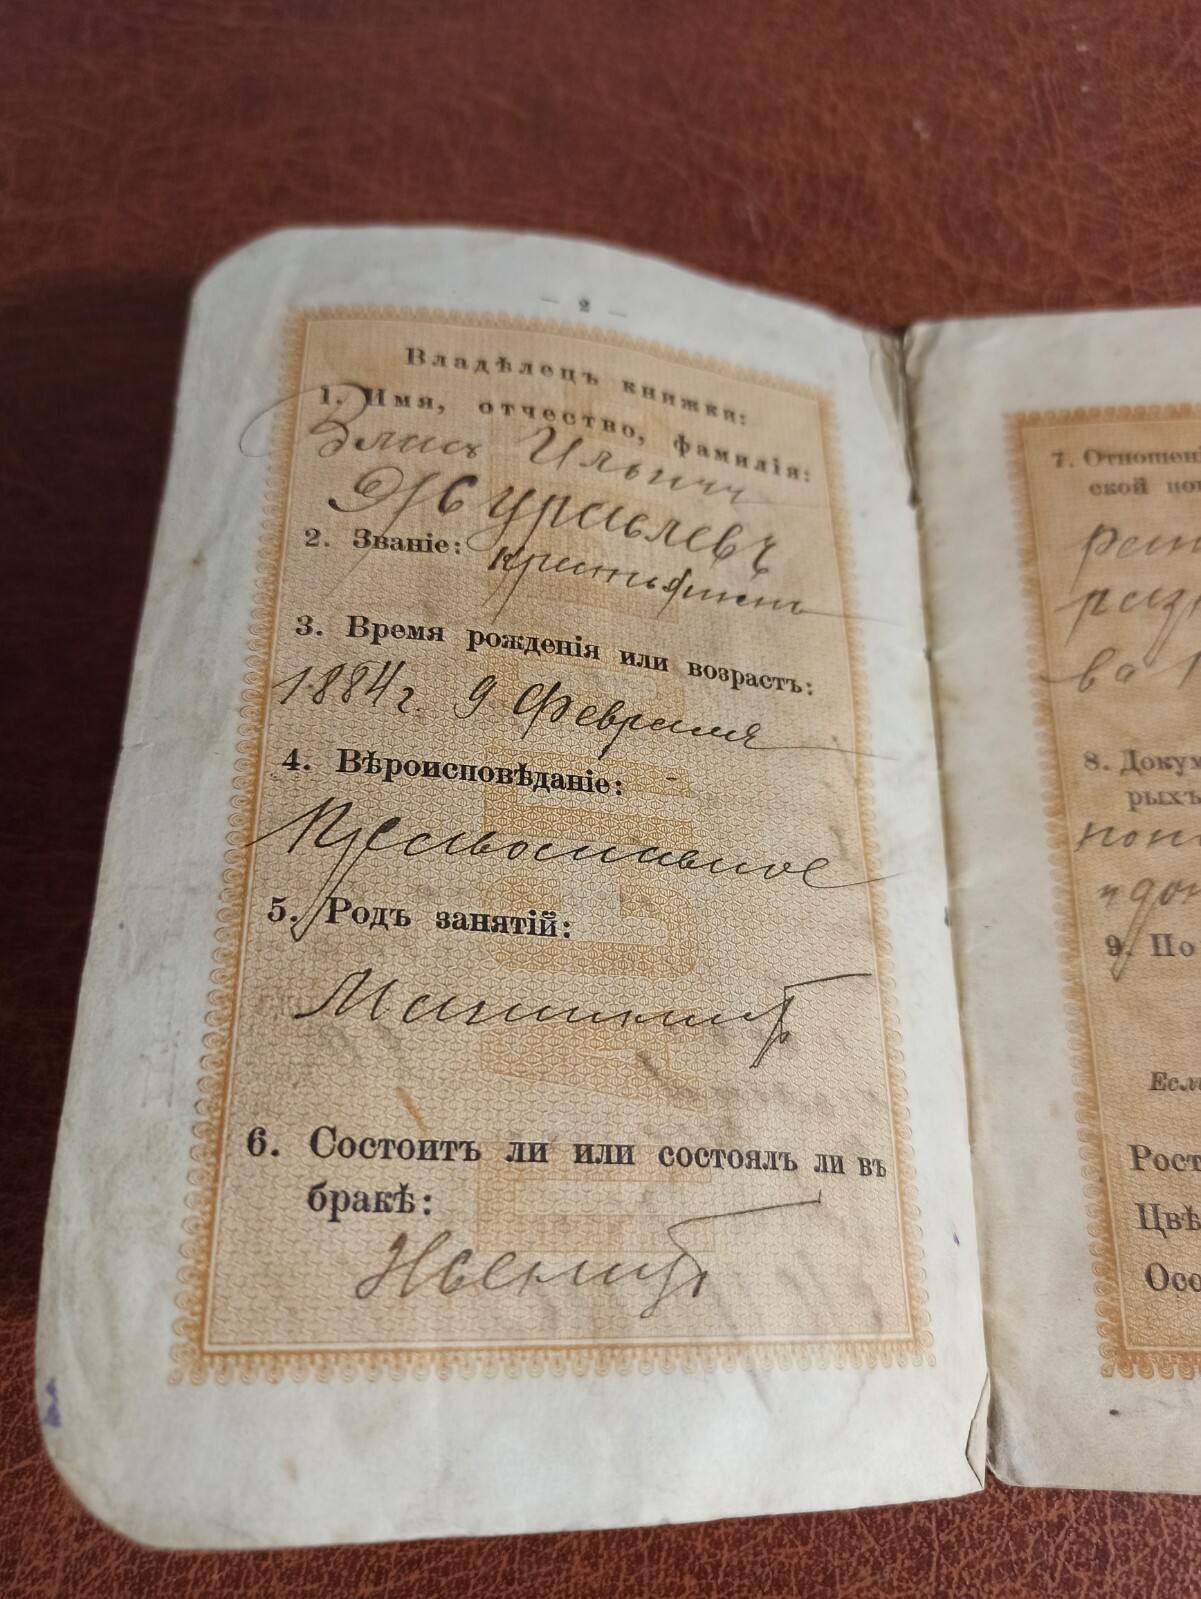 — 2 —
Владѣлецъ книжки:
1. Имя, отчество, фамилія:
Ильичъ
Журавлевъ
2. Званіе: крестьянинъ
3. Время рожденія или возрастъ:
1884 г. 9 Февраля
4. Вѣроисповѣданіе:
Православное
5. Родъ занятій:
Машинистъ
6. Состоитъ ли или состоялъ ли въ
бракѣ:
Женатъ
7. Отношені
ской пов
8. Докум
рыхъ
9. По
Если
Рост
Цвѣ
Осо